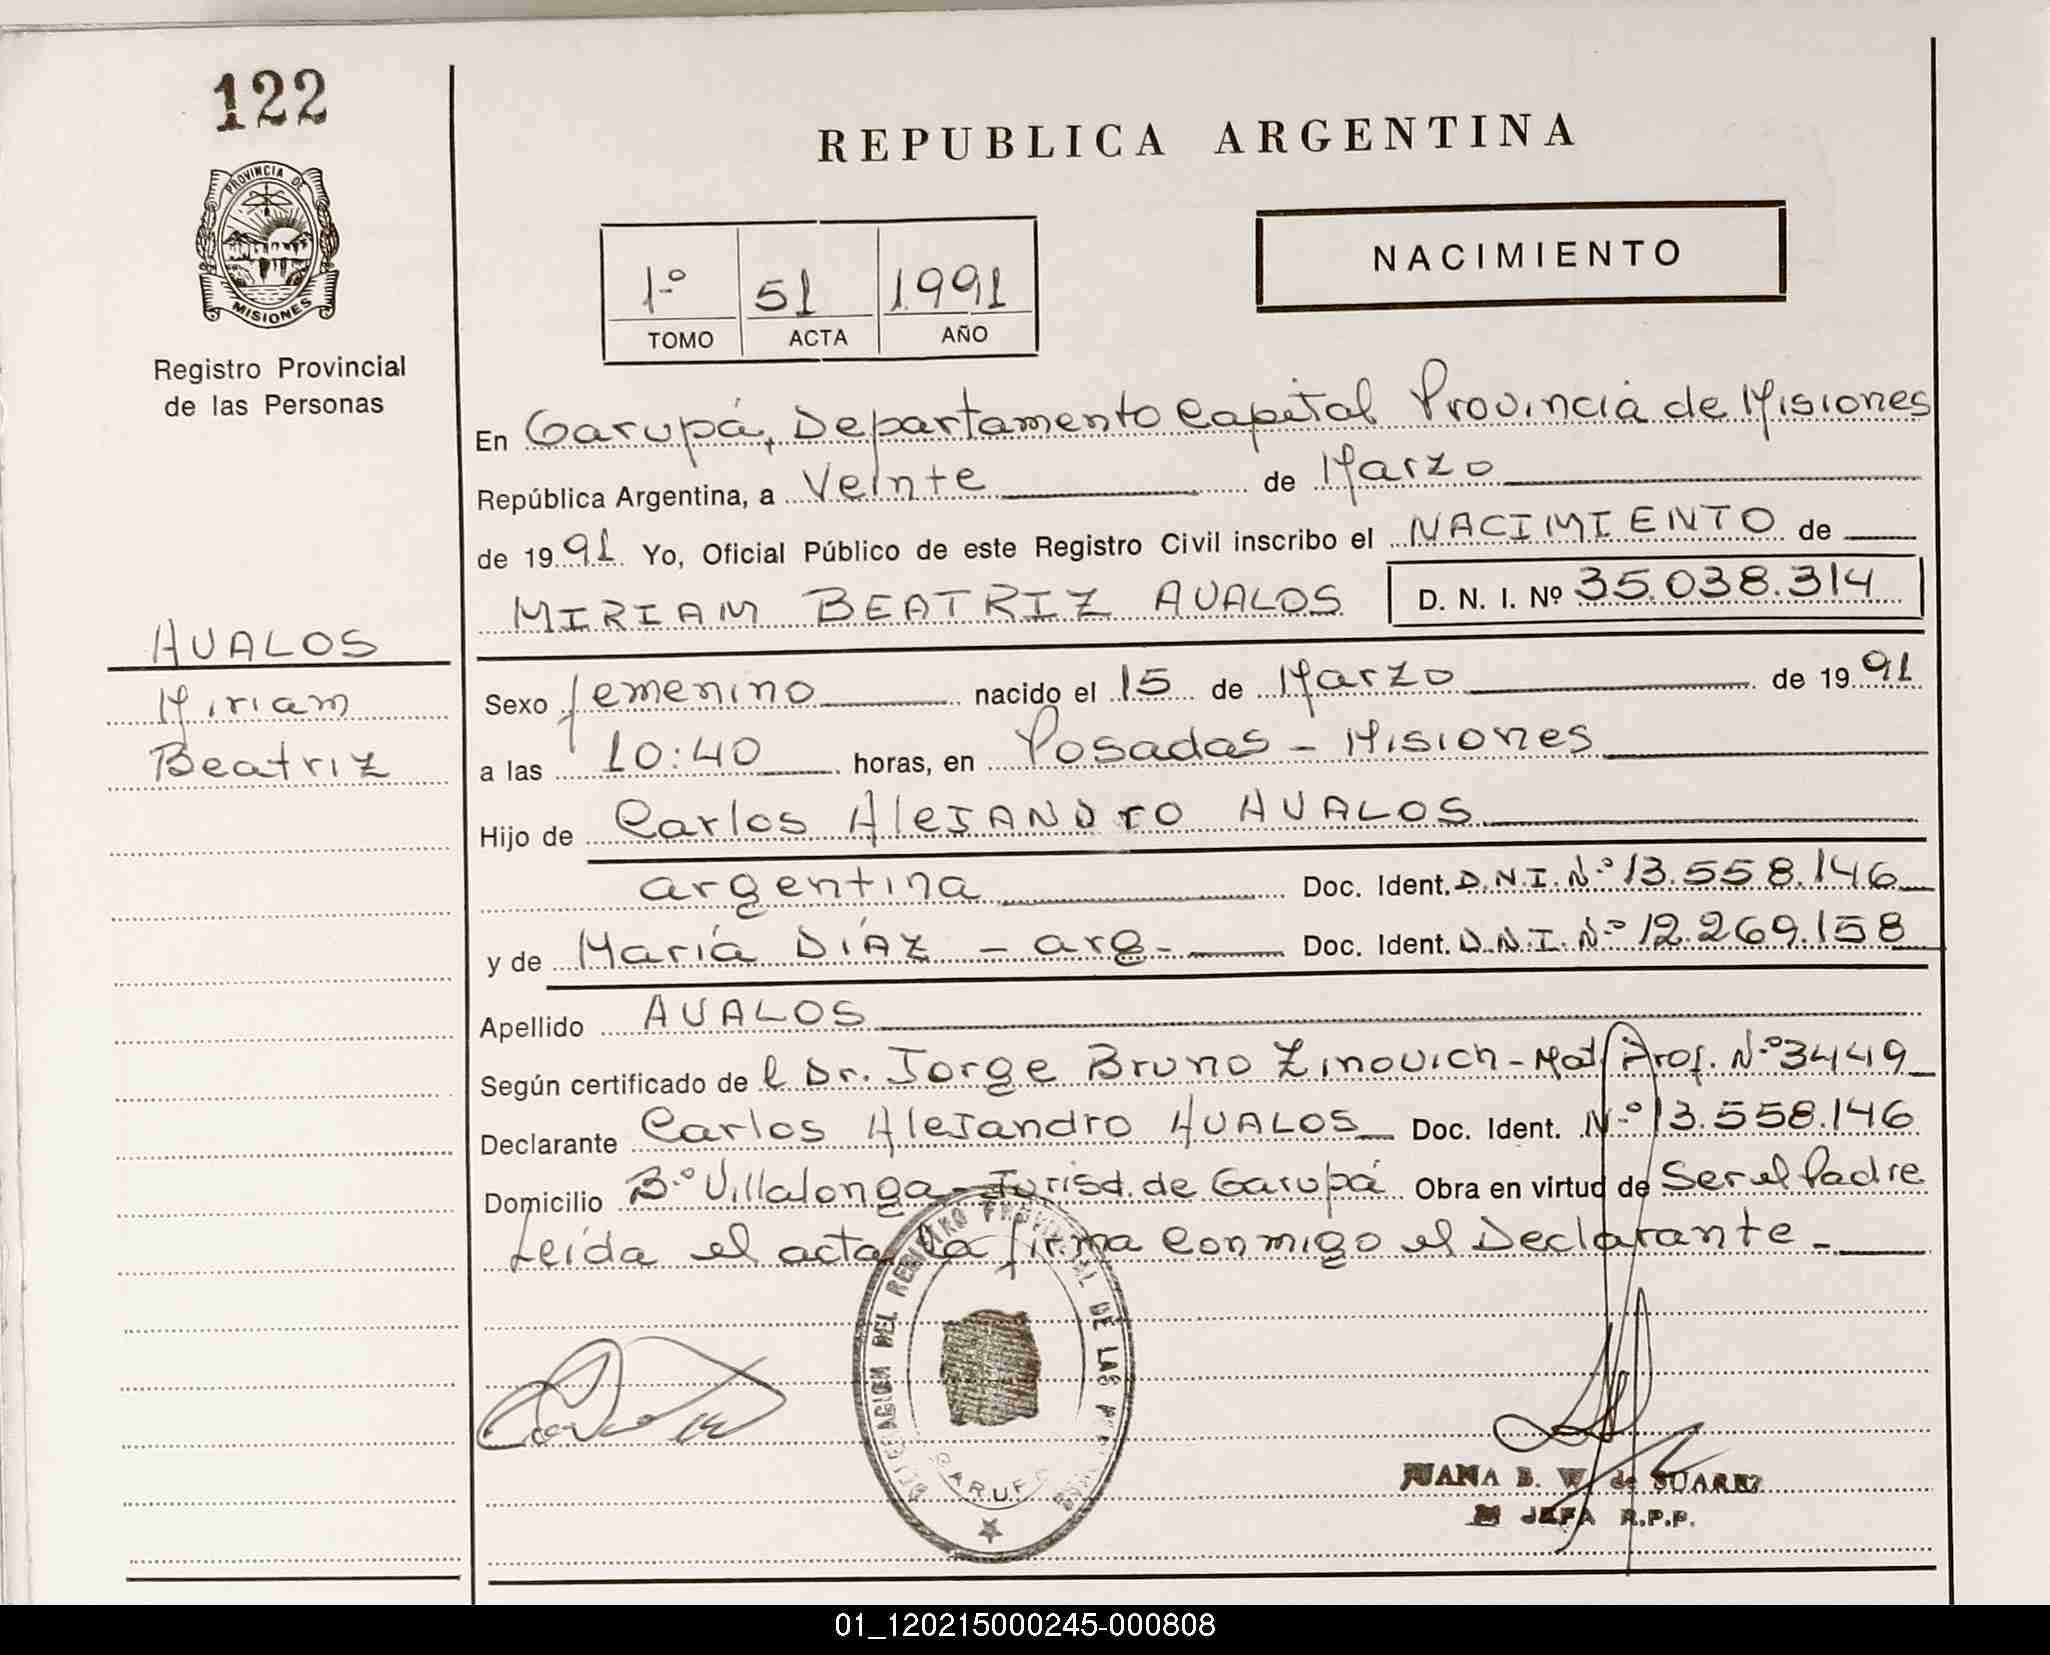 122
PROVINCIA DE
MISIONES
Registro Provincial
de las Personas
REPUBLICA ARGENTINA
1º 51 1991
TOMO ACTA AÑO
NACIMIENTO
En Garupá, Departamento Capital Provincia de Misiones
República Argentina, a Veinte de Marzo
de 1991 Yo, Oficial Público de este Registro Civil inscribo el NACIMIENTO de
MIRIAM BEATRIZ AVALOS D. N. I. Nº 35.038.314
AVALOS
Miriam
Beatriz
Sexo femenino nacido el 15 de Marzo de 1991
a las 10:40 horas, en Posadas - Misiones
Hijo de Carlos AleJANDrO AVALOS
argentina Doc. Ident. D.N.I. Nº 13.558.146
y de María DíAZ - arg- Doc. Ident. D.N.I. Nº 12.269.158
Apellido AVALOS
Según certificado de l Dr. Jorge Bruno Zinovich - Mat Prof. Nº 3449
Declarante Carlos AleJandro AVALOS Doc. Ident. Nº 13.558.146
Domicilio Bº Villalonga - Jurisd. de Garupá Obra en virtud de Ser el Padre
Leída el acta la firma conmigo el Declarante -
DELEGACION DEL REGISTRO PROVINCIAL DE LAS
JUANA B. W. de SUAREZ
JEFA R.P.P.
01_120215000245-000808